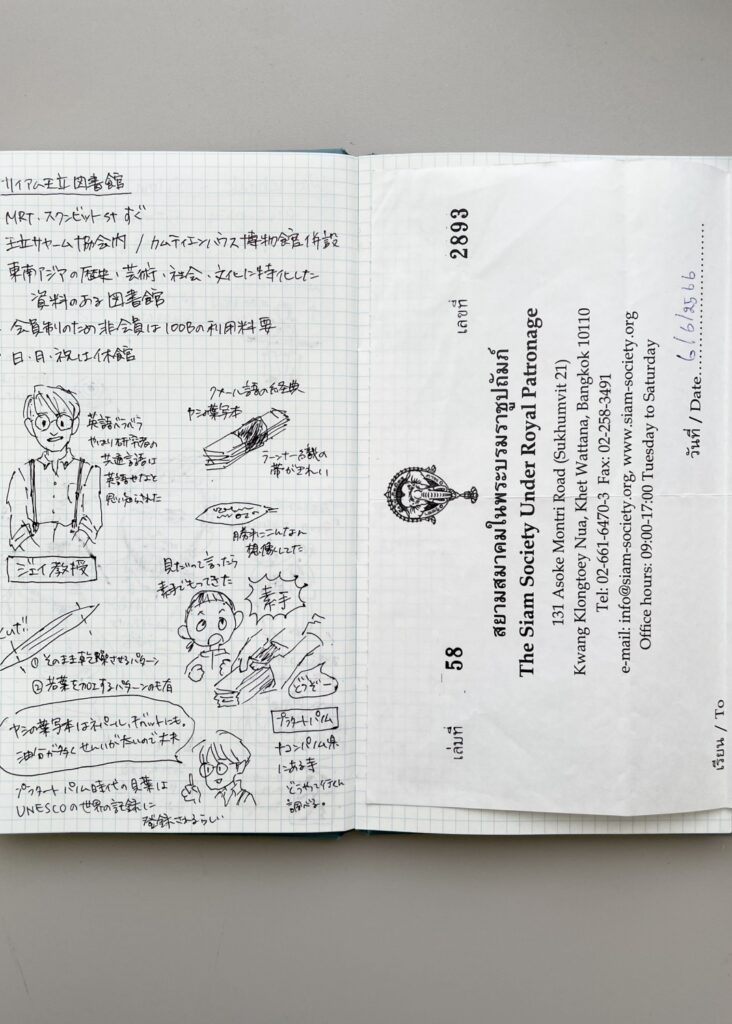 サイアム王立図書館
MRT・スクンビット st すぐ
王立サヤーム協会内 / カムティエンハウス博物館併設
東南アジアの歴史・芸術・社会・文化に特化した
資料のある図書館
会員制のため非会員は100Bの利用料要
日・月・祝は休館
英語ペラペラ
やはり研究者の
共通言語は
英語なんだと
思い知らされた
ジェイ教授
クメール語の経典
ヤシの葉写本
ラーンナー古裁の
帯がきれい
勝手にこんなん
想像してた
見たいって言ったら
素手でもってきた
素手
どうぞー
①そのまま乾燥させるパターン
②若葉を加工するパターンのも有
ヤシの葉写本はネパール、チベットにも。
油分が多くせんいがかたいので丈夫
プラタートパノム時代の貝葉は
UNESCOの世界の記録に
登録されてるらしい
プラタートパノム
ナコンパノム県
にある寺
どうやって行くん
調べる。
เล่มที่ 58
เลขที่ 2893
สยามสมาคมในพระบรมราชูปถัมภ์
The Siam Society Under Royal Patronage
131 Asoke Montri Road (Sukhumvit 21)
Kwang Klongtoey Nua, Khet Wattana, Bangkok 10110
Tel: 02-661-6470-3 Fax: 02-258-3491
e-mail: info@siam-society.org, www.siam-society.org
Office hours: 09:00-17:00 Tuesday to Saturday
วันที่ / Date 6/6/2566
เรียน / To